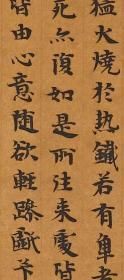 猛火燒於熱鐵若有
死亦復如是所往来處皆
皆由心意随欲輕躁